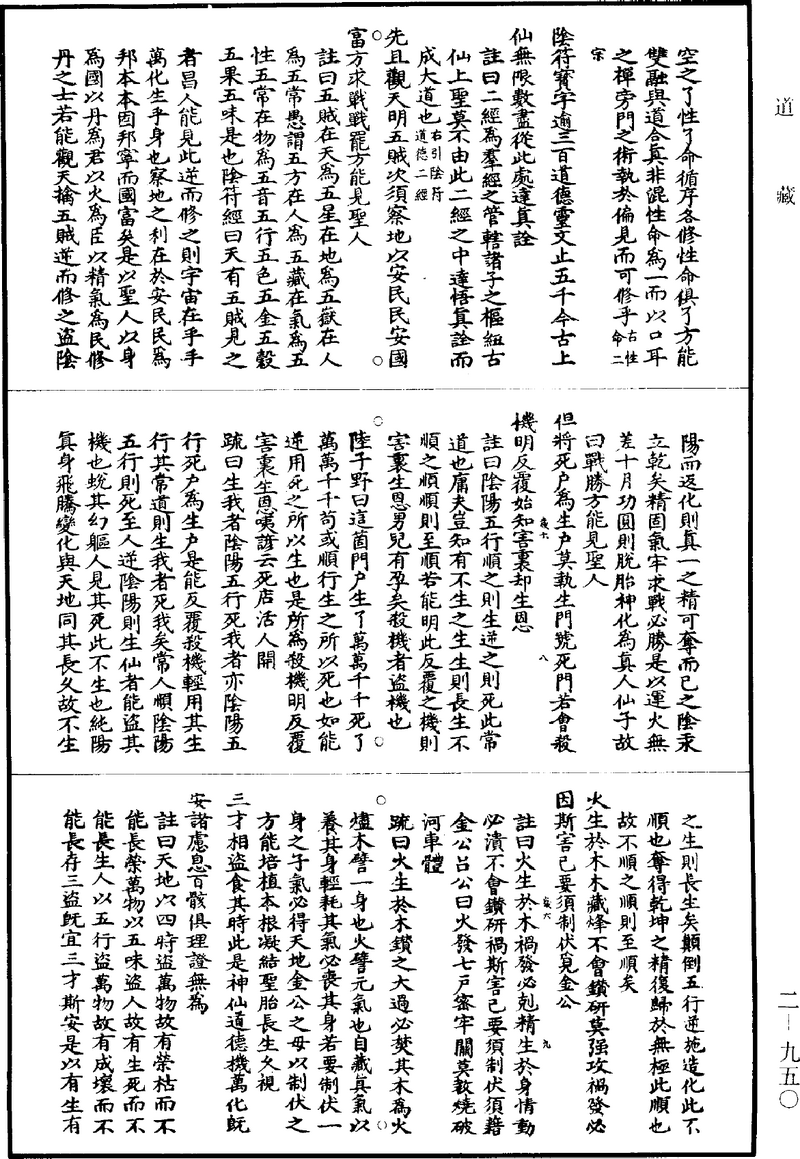 道藏
空之了性了命循序各修性命俱了方能
雙融與道合真非混性命為一而以口耳
之禪旁門之術執於偏見而可修乎右性命二
宗
陰符寶字逾三百道德靈文止五千今古上
仙無限數盡從此處達真詮
註曰二經為羣經之管轄諸子之樞紐古
仙上聖莫不由此二經之中達悟真詮而
成大道也右引陰符道德二經
先且觀天明五賊次須察地以安民民安國
富方求戰戰罷方能見聖人
註曰五賊在天為五星在地為五嶽在人
為五常愚謂五方在人為五藏在氣為五
性五常在物為五音五行五色五金五穀
五果五味是也陰符經曰天有五賊見之
者昌人能見此逆而修之則宇宙在乎手
萬化生乎身也察地之利在於安民民為
邦本本固邦寧而國富矣是以聖人以身
為國以丹為君以火為臣以精氣為民修
丹之士若能觀天擒五賊逆而修之盜陰
陽而返化則真一之精可奪而己之陰汞
立乾矣精固氣牢求戰必勝是以運火無
差十月功圓則脫胎神化為真人仙子故
曰戰勝方能見聖人
但將死戶為生戶莫執生門號死門若會殺
機明反覆始知害裏却生恩
註曰陰陽五行順之則生逆之則死此常
道也庸夫豈知有不生之生生則長生不
順之順順則至順若能明此反覆之機則
害裏生恩男兒有孕矣殺機者盜機也
陸子野曰這箇門戶生了萬萬千千死了
萬萬千千苟或順行生之所以死也如能
逆用死之所以生也是所為殺機明反覆
害裏生恩噗諺云死店活人開
疏曰生我者陰陽五行死我者亦陰陽五
行死戶為生戶是能反覆殺機輕用其生
行其常道則生我者死我矣常人順陰陽
五行則死至人逆陰陽則生仙者能盜其
機也蛻其幻軀人見其死此不生也純陽
真身飛騰變化與天地同其長久故不生
之生則長生矣顛倒五行逆施造化此不
順也奪得乾坤之精復歸於無極此順也
故不順之順則至順矣
火生於木木藏烽不會鑽研莫强攻禍發必
因斯害己要須制伏覓金公
註曰火生於木禍發必剋精生於身情動
必潰不會鑽研禍斯害己要須制伏須藉
金公呂公曰火發七戶密牢關莫教燒破
河車體
疏曰火生於木鑽之太過必焚其木為火
爐木譬一身也火譬元氣也自藏真氣以
養其身輕耗其氣必喪其身若要制伏一
身之子氣必得天地金公之母以制伏之
方能培植本根凝結聖胎長生久視
三才相盜食其時此是神仙道德機萬化既
安諸慮息百骸俱理證無為
註曰天地以四時盜萬物故有榮枯而不
能長榮萬物以五味盜人故有生死而不
能長生人以五行盜萬物故有成壞而不
能長存三盜既宜三才斯安是以有生有
二－九五〇